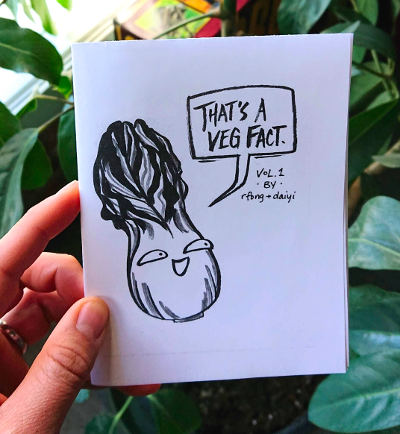 THAT'S A
VEG FACT.
VOL. 1
· BY ·
rfong + daiyi